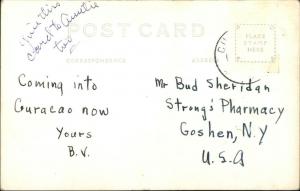 Give this
card to Auntie
POST CARD
CORRESPONDENCE
ADDRESS
PLACE
STAMP
HERE
Coming into
Curacao now
Yours
B.V.
Mr Bud Sheridan
Strong's Pharmacy
Goshen, N.Y
U.S.A